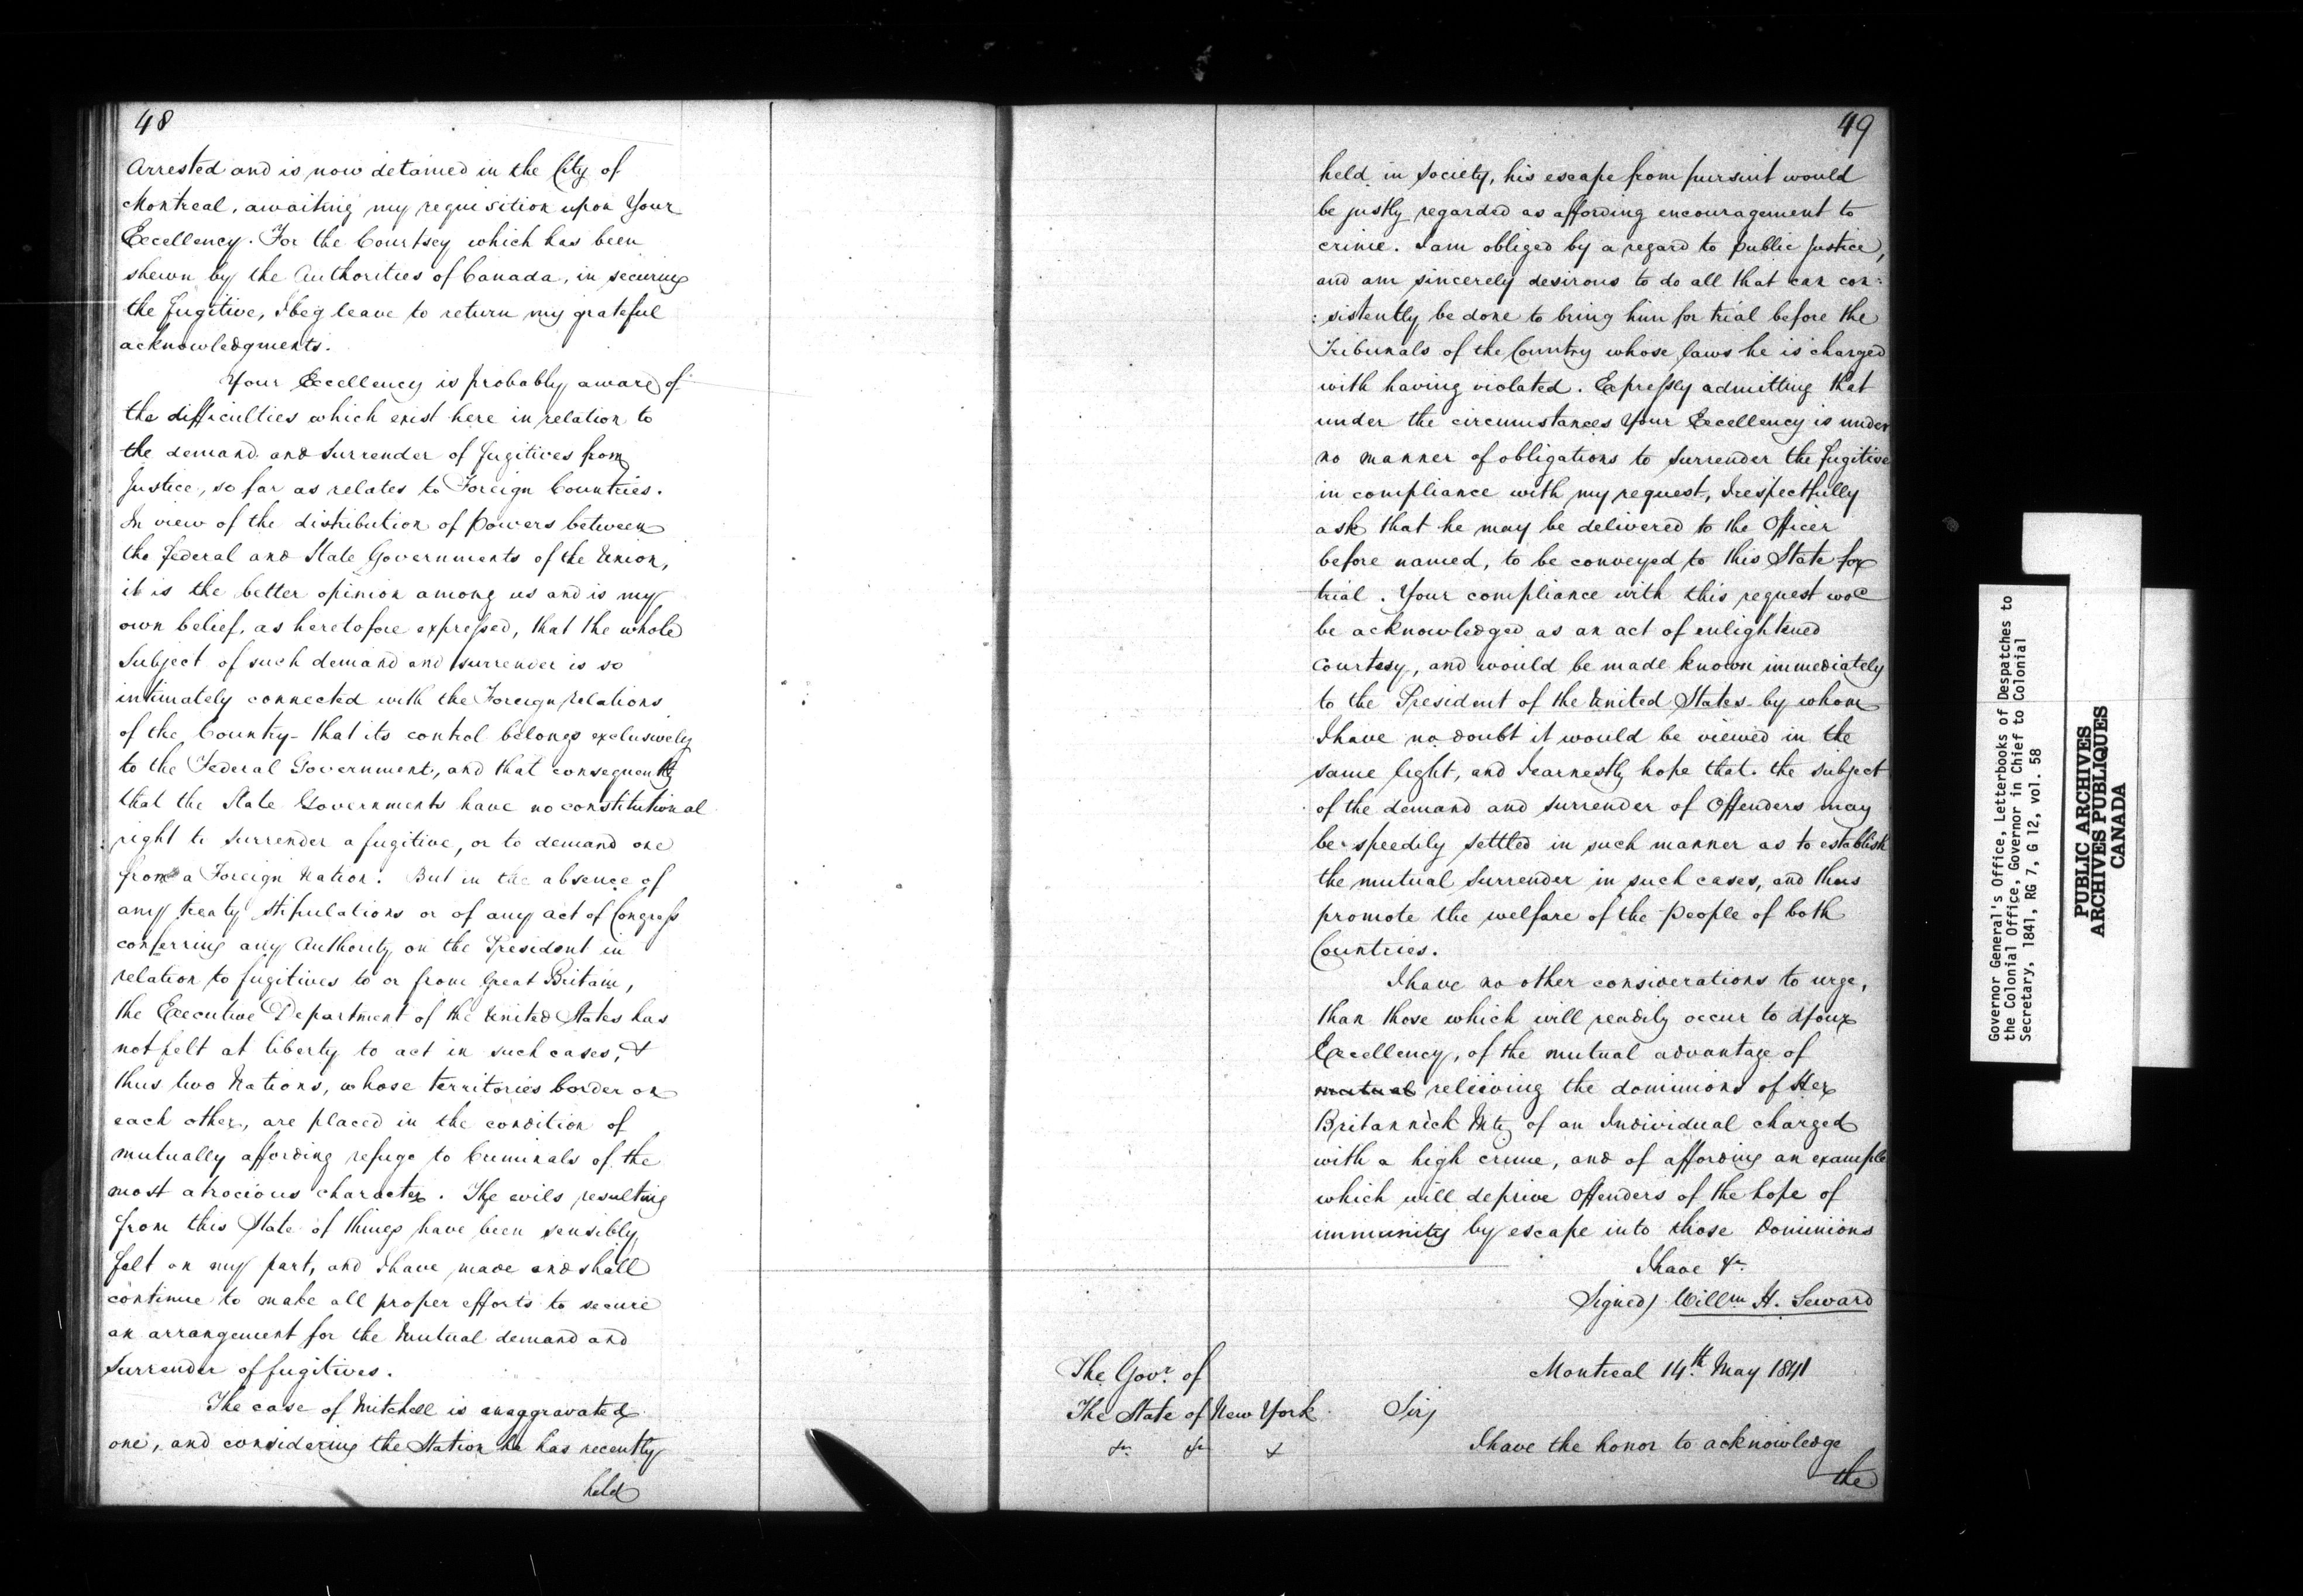 48
Arrested and is now detained in the City of
Montreal, awaiting my requisition upon Your
Excellency. For the Courtsey which has been
shewn by the Authorities of Canada, in securing
the fugitive, I beg leave to return my grateful
acknowledgments.
Your Excellency is probably aware of
the difficulties which exist here in relation to
the demand and surrender of fugitives from
Justice, so far as relates to Foreign Countries.
In view of the distribution of Powers between
the Federal and State Governments of the Union,
it is the better opinion among us and is my
own belief, as heretofore expressed, that the whole
Subject of such demand and surrender is so
intimately connected with the Foreign relations
of the Country - that its control belongs exclusively
to the Federal Government, and that consequently
that the State Governments have no constitutional
right to surrender a fugitive, or to demand one
from a Foreign Nation. But in the absence of
any treaty stipulations or of any act of Congress
conferring any Authority on the President in
relation to fugitives to or from Great Britain,
the Executive Department of the United States has
not felt at liberty to act in such cases, &
thus two Nations, whose territories border on
each other, are placed in the condition of
mutually affording refuge to Criminals of the
most atrocious character. The evils resulting
from this State of things have been sensibly
felt on my part, and I have made and shall
continue to make all proper efforts to secure
an arrangement for the Mutual demand and
Surrender of fugitives.
The case of Mitchell is an aggravated
one, and considering the Station he has recently
held
49
held in society, his escape from pursuit would
be justly regarded as affording encouragement to
crime. I am obliged by a regard to public Justice,
and am sincerely desirous to do all that can con:
:sistently be done to bring him for trial before the
Tribunals of the Country whose laws he is charged
with having violated. Expressly admitting that
under the circumstances Your Excellency is under
no manner of obligations to surrender the fugitive
in compliance with my request, I respectfully
ask that he may be delivered to the Officer
before named, to be conveyed to this State for
trial. Your compliance with this request wod
be acknowledged as an act of enlightened
Courtesy, and would be made known immediately
to the President of the United States by whom
I have no doubt it would be viewed in the
same light, and I earnestly hope that the subject
of the demand and surrender of Offenders may
be speedily settled in such manner as to establish
the mutual Surrender in such cases, and thus
promote the welfare of the People of both
Countries.
I have no other considerations to urge,
than those which will readily occur to Your
Excellency, of the mutual advantage of
mutual relieving the dominions of Her
Britannick Mty of an Individual charged
with a high crime, and of affording an example
which will deprive Offenders of the hope of
immunity by escape into those Dominions
I have &c.
Signed) Willm H. Seward
The Govr. of
The State of New York
&c &c &
Montreal 14th May 1841
Sir,
I have the honor to acknowledge
the
Governor General's Office, Letterbooks of Despatches to
the Colonial Office, Governor in Chief to Colonial
Secretary, 1841, RG 7, G 12, vol. 58
PUBLIC ARCHIVES
ARCHIVES PUBLIQUES
CANADA